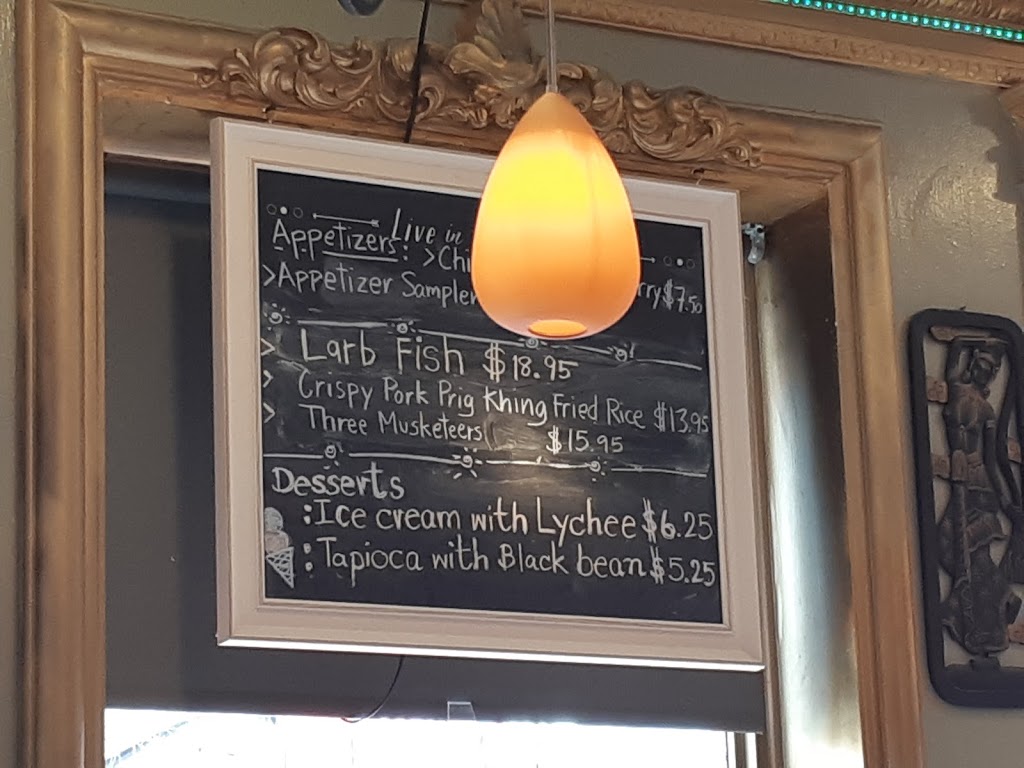 Live in
Appetizers: >Chi
>Appetizer Sampler rry $7.50
> Larb Fish $18.95
> Crispy Pork Prig Khing Fried Rice $13.95
> Three Musketeers $15.95
Desserts
:Ice cream with Lychee $6.25
:Tapioca with Black bean $5.25